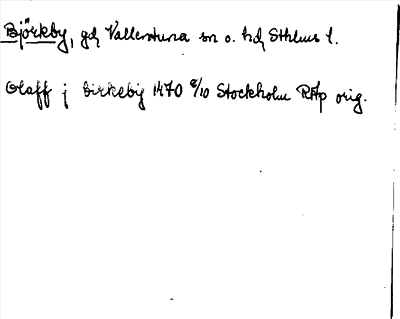 Björkby, gd, Vallentuna sn o. hd, Sthlms l.
Olaff j Birkeby 1470 6/10 Stockholm RAp orig.